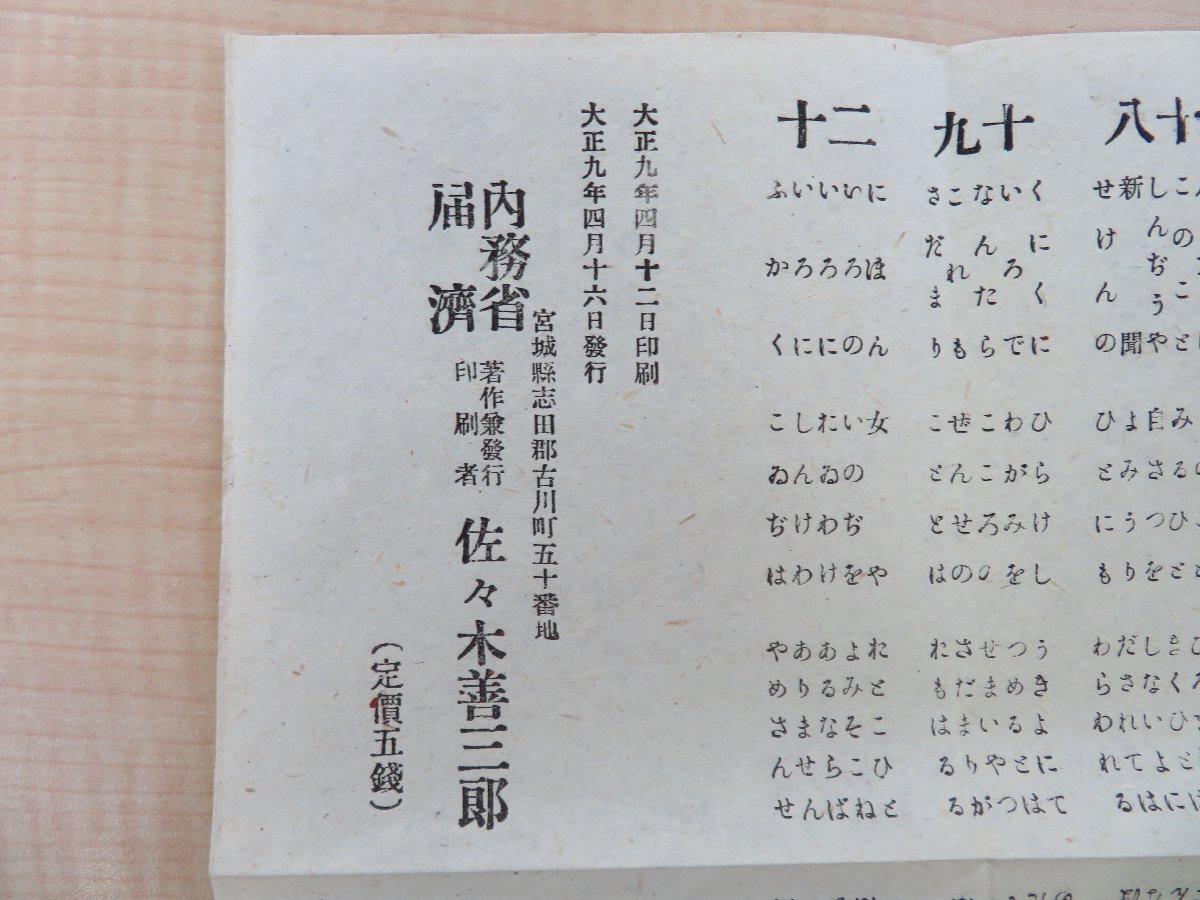 十八
しんぢうや
自さつを
しないよに
新聞
よみうり
だされては
せけんの
ひとにも
わらわれる
十九
くにくに
ひらけし
うきよにて
いろで
わがみを
つめるとは
なんたら
こころの
せまいやつ
これも
ぜんせの
さだまりが
さだまり
こととは
れもはるる
二十
にほん
女や
れとこひと
いろの
いのぢを
よみそこね
いろに
たゐわけ
あるならば
いろに
しんけわ
ありません
ふかく
こゐぢは
やめさせん
大正九年四月十二日印刷
大正九年四月十六日發行
宮城縣志田郡古川町五十番地
內務省
屆濟
著作兼發行
印刷者
佐々木善三郎
(定價五錢)